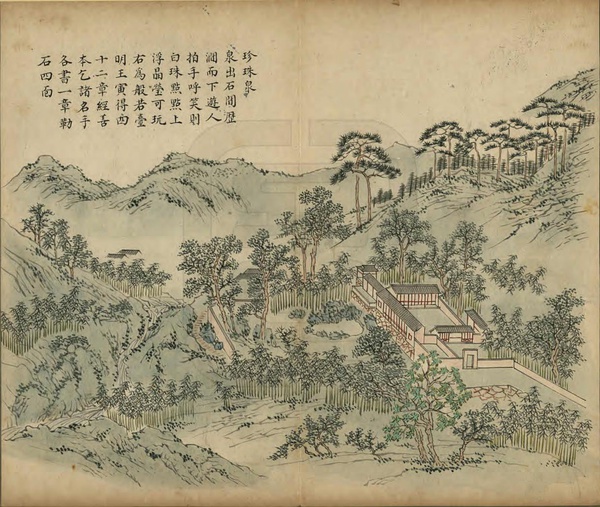 珍珠泉
泉出石間歷
澗而下遊人
拍手呼笑則
白珠㸃㸃上
浮晶瑩可玩
右為般若臺
明王寅得西
十二章經善
本乞諸名手
各書一章勒
石四面